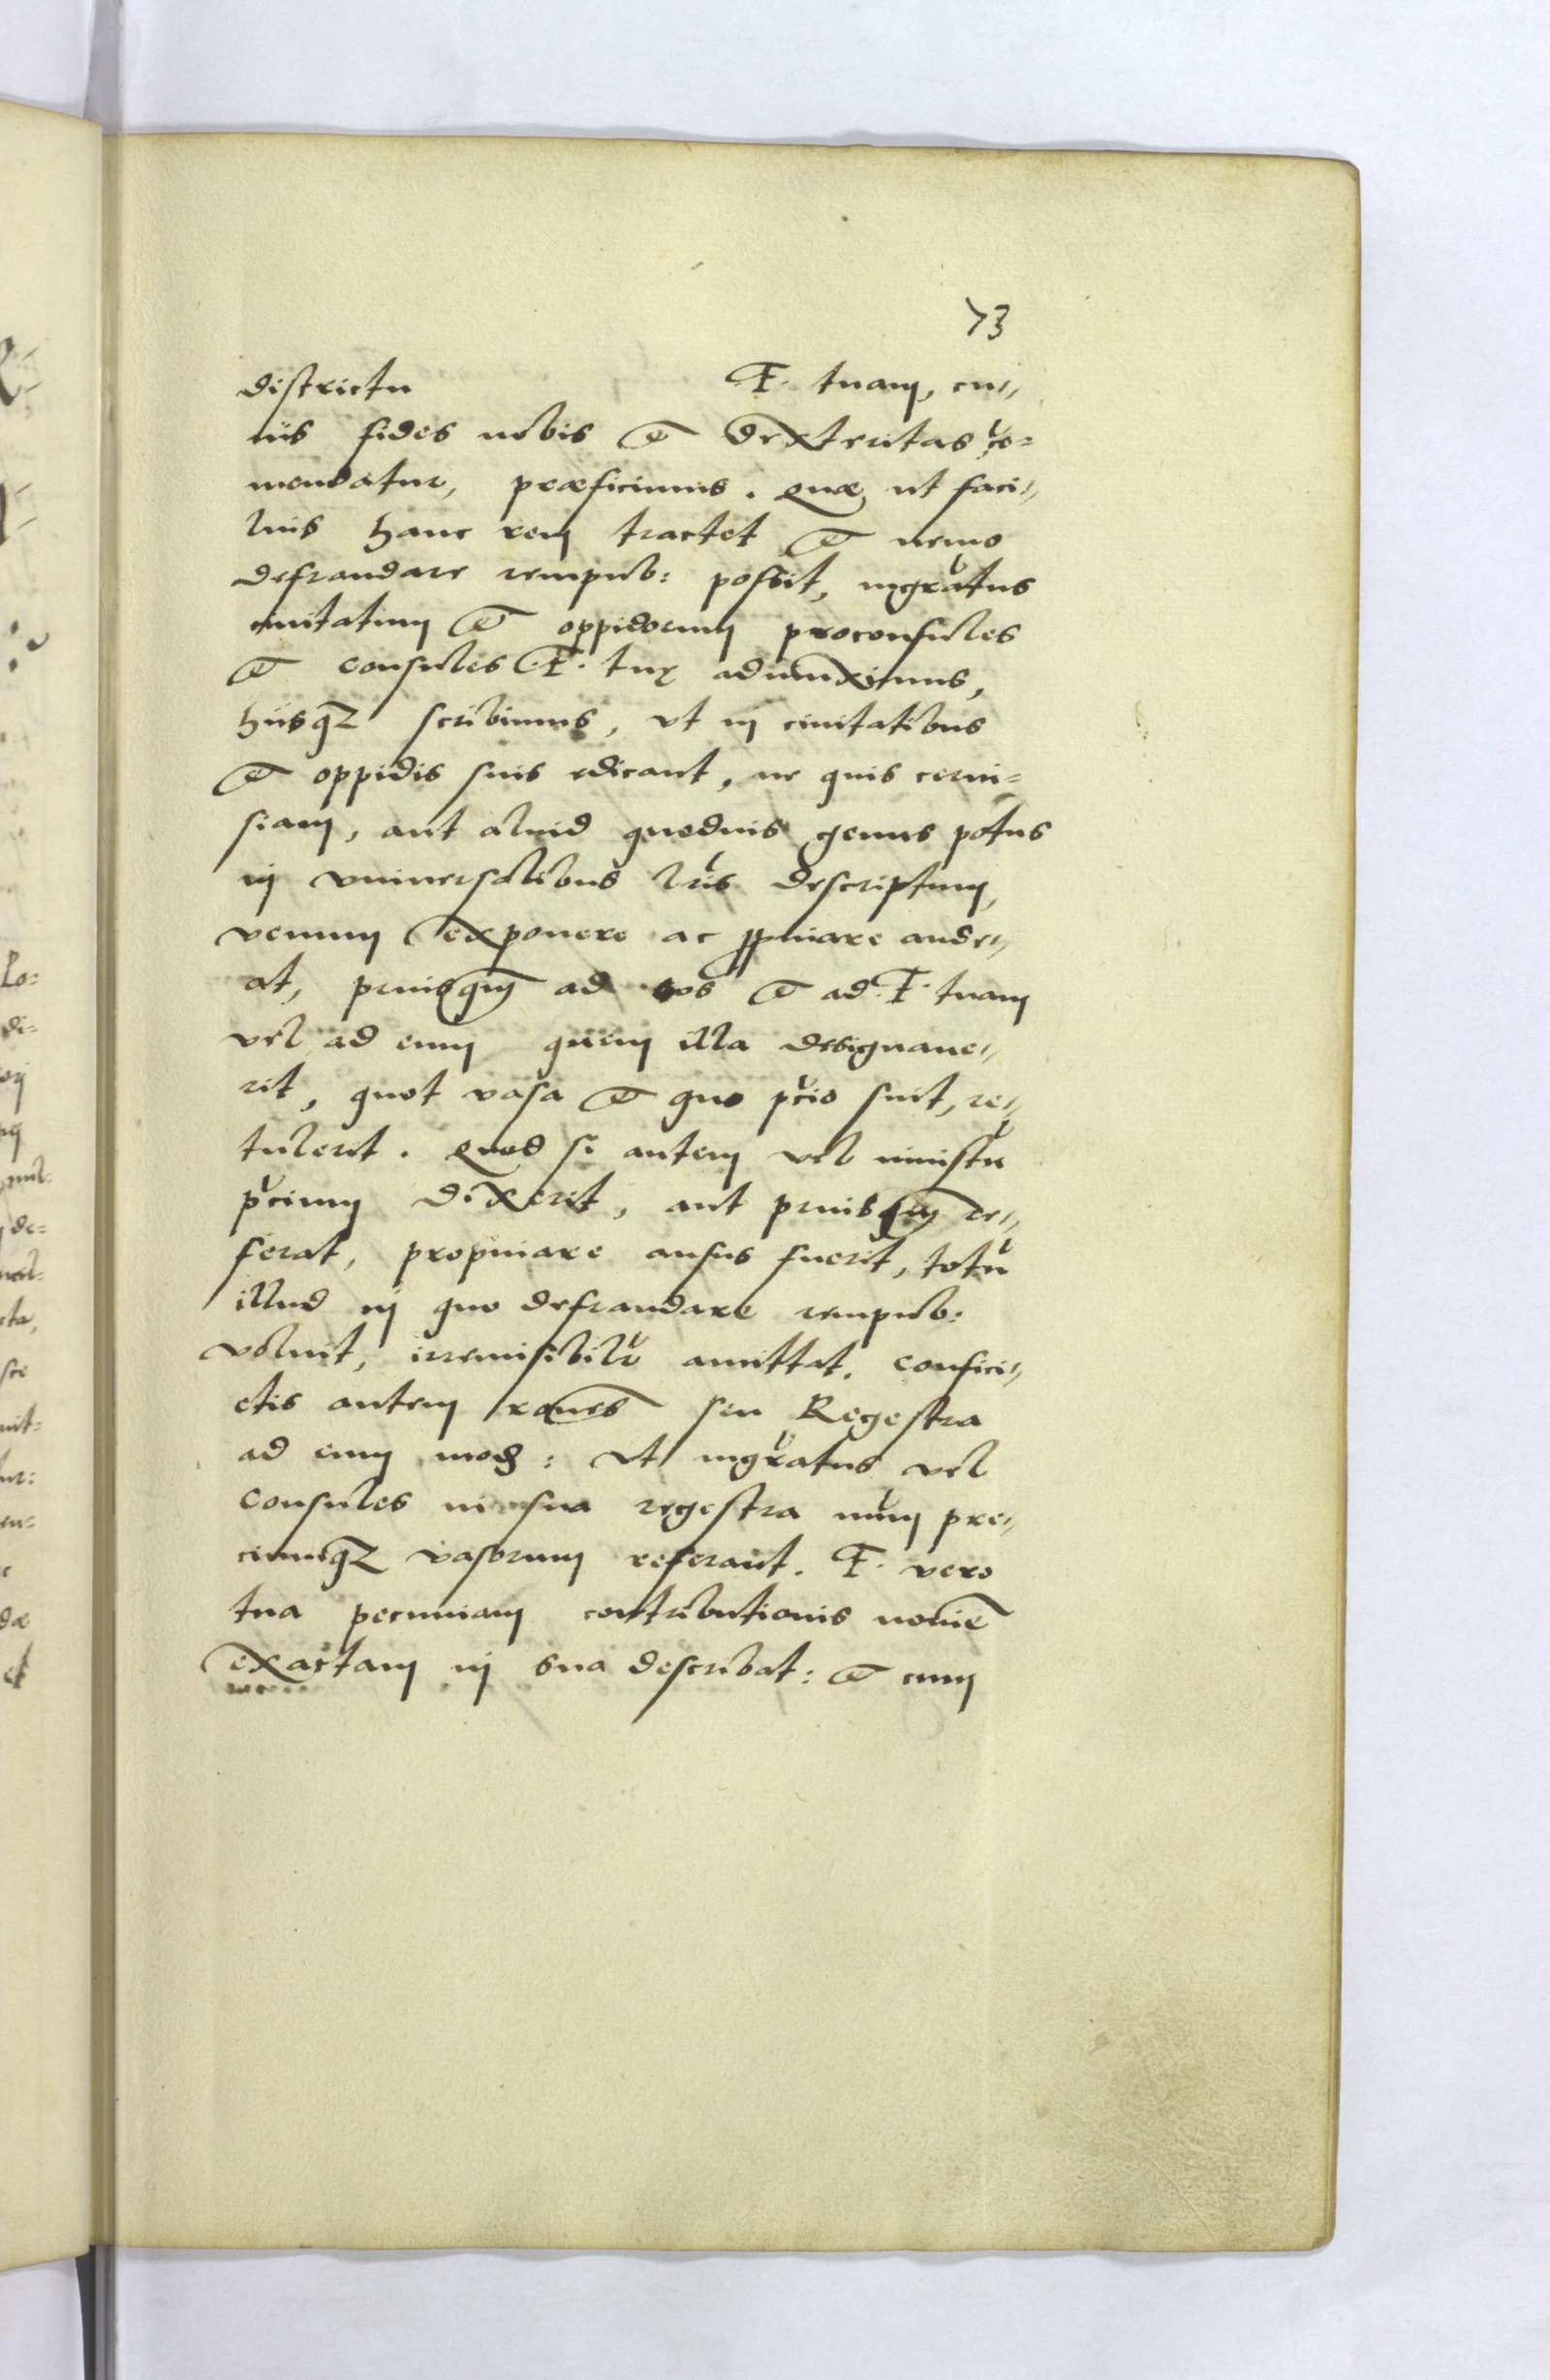 73
districtu F. tuam, cu⸗
ius fides nobis et dexteritas cõ⸗
mendatur, præficimus. Quæ, ut faci⸗
lius hanc rem tractet et nemo
defraudare rempub: possit, mgratus
civitatum et oppidorum proconsules
et consules F. tuę adiunximus,
hiisqꝫ scribimus, ut in civitatibus
et oppidis suis edicant, ne quis cervi⸗
siam, aut aliud quoduis genus potus
in vniversalibus lr̃is descriptum,
venum exponere ac ꝓpinare aude⸗
at, priusqꝫ ad eos et ad F. tuam
vel ad eum quem illa designave⸗
rit, quot vasa et quo p̃cio sint, re⸗
tulerit. Quod si autem vel iniustũ
p̃cium dixerit, aut priusqꝫ re⸗
ferat, propinare ausus fuerit, totũ
illud in quo defraudare rempub:
voluit, irremisibilr̃ amittat. confici⸗
etis autem rãones seu Regestra
ad eum mod: Ut mgratus vel
consules in sua regestra nũm pre⸗
ciumqꝫ vasorum referant. F. vero
tua pecuniam contributionis novie
exactam in sua describat: et cum